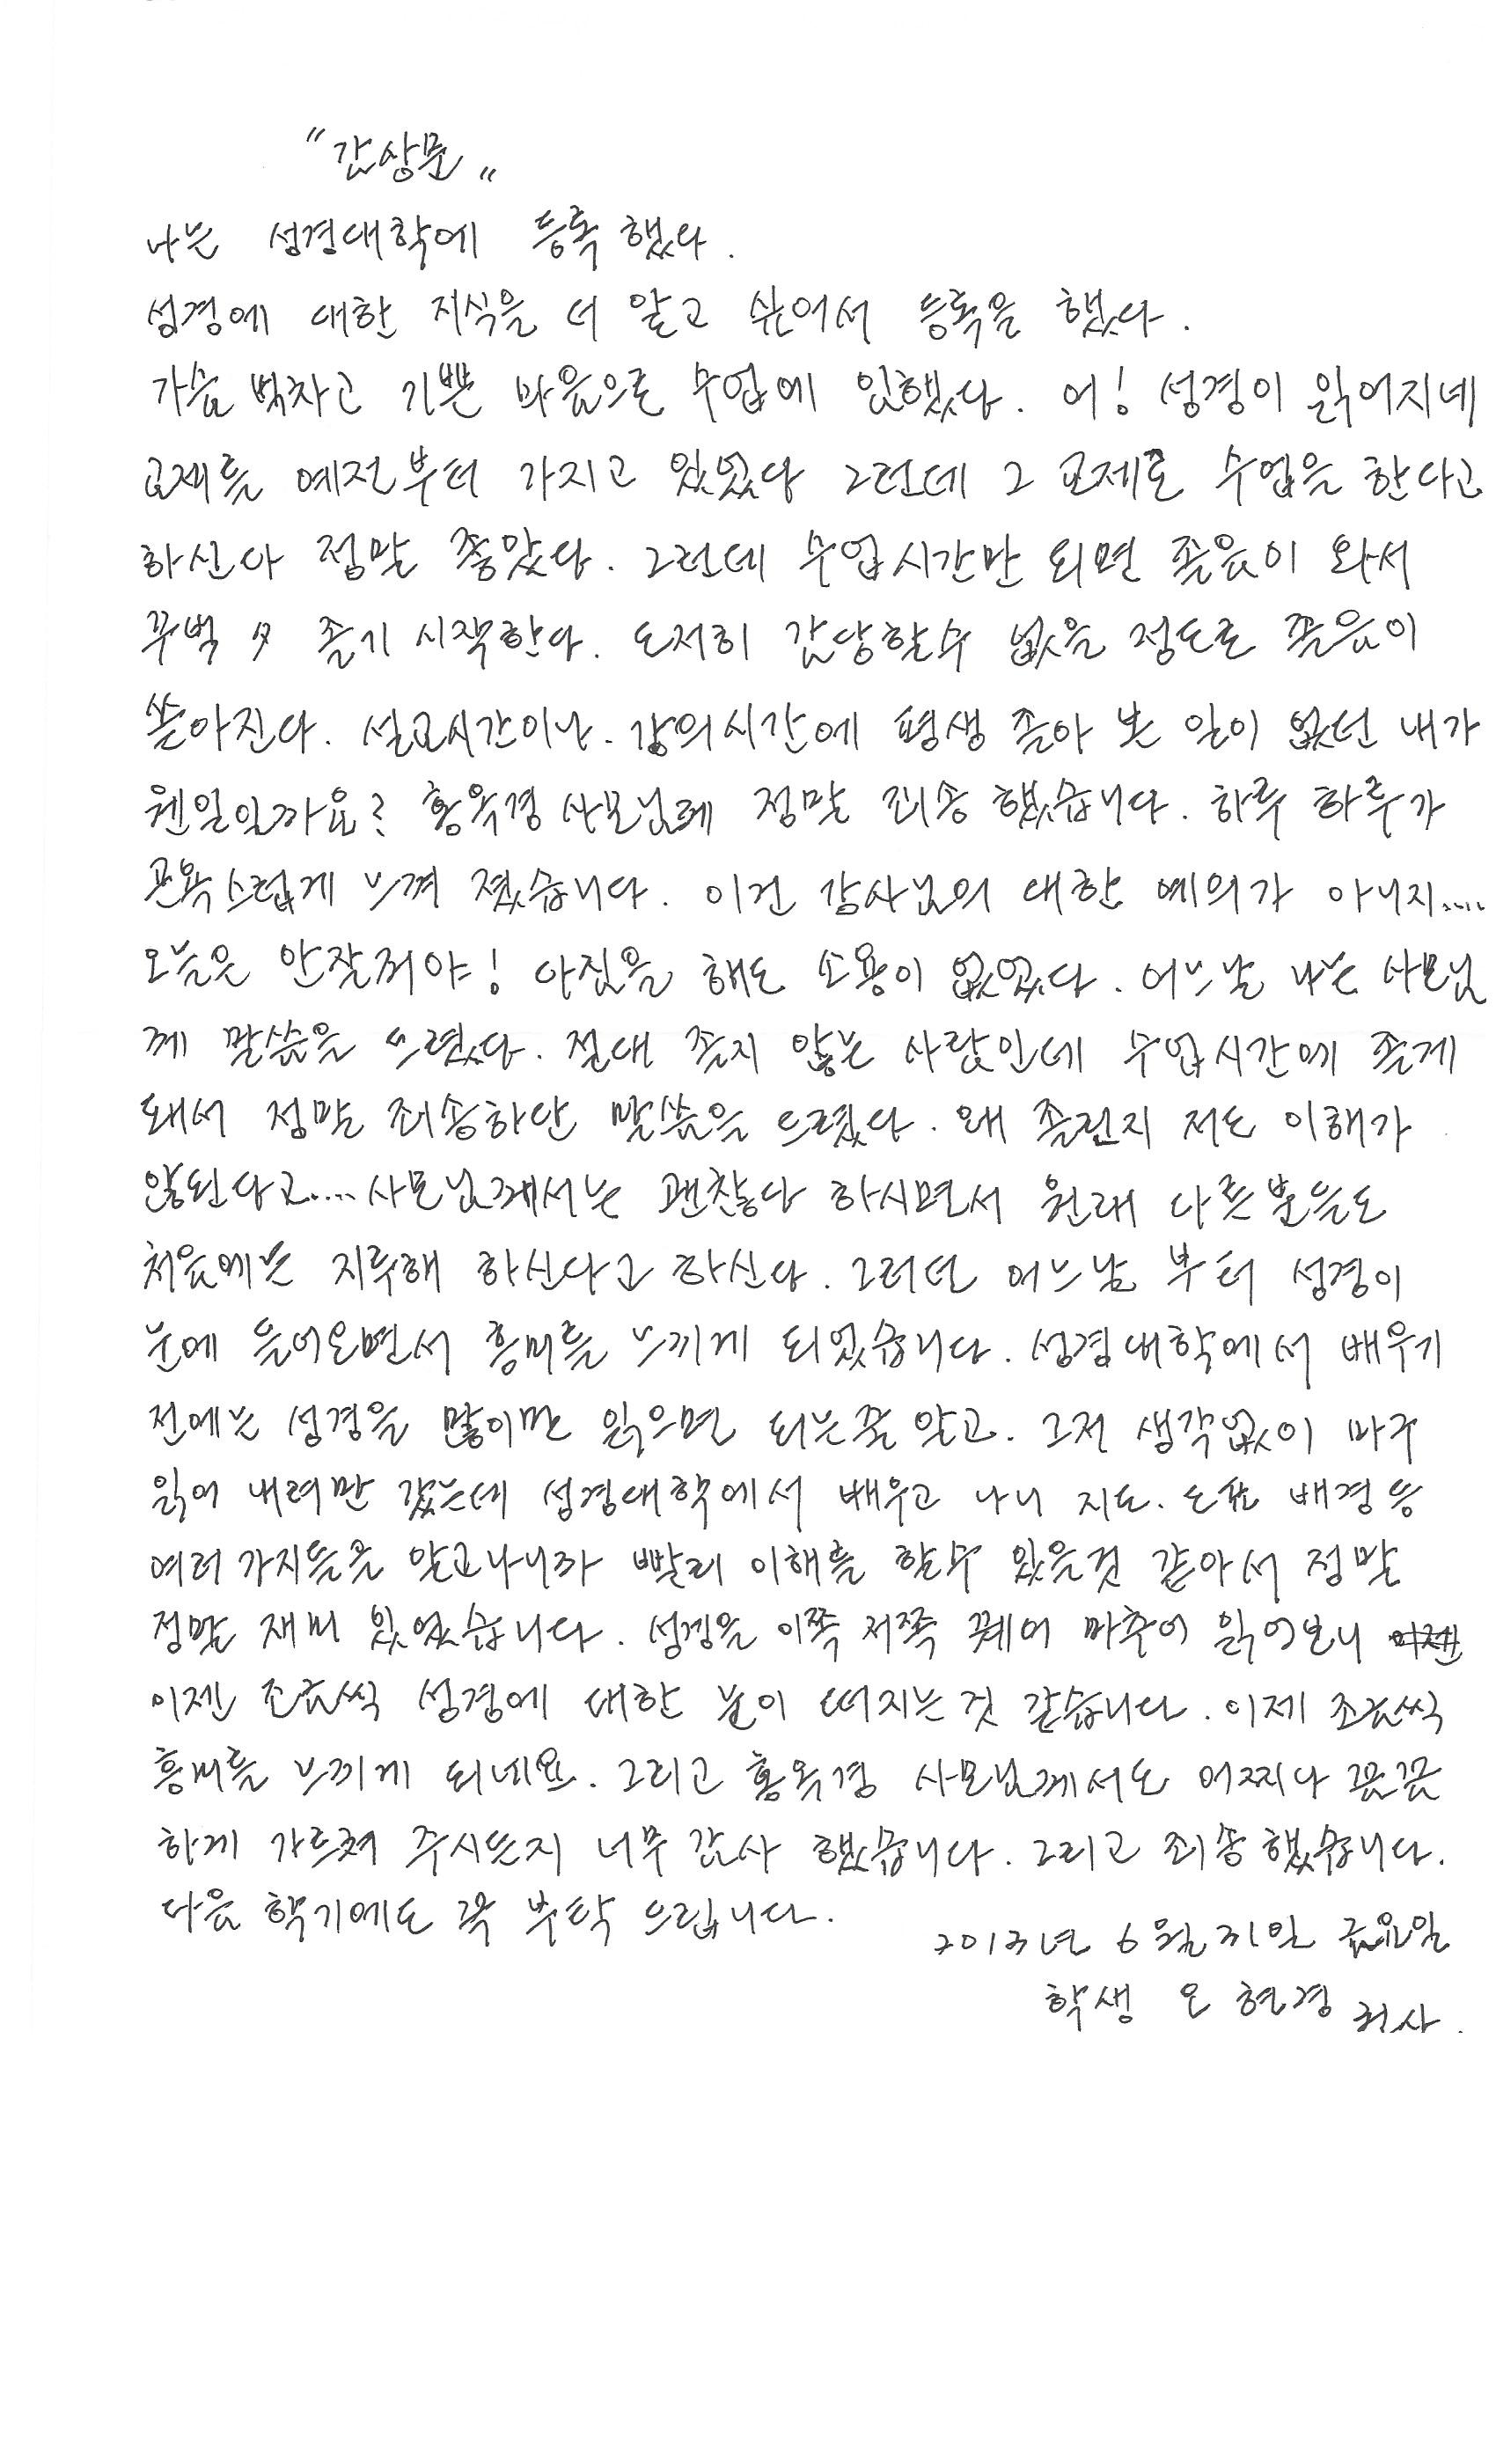 "감상문"
나는 성경대학에 등록 했다.
성경에 대한 지식을 더 알고 싶어서 등록을 했다.
가슴 벅차고 기쁜 마음으로 수업에 임했다. 어! 성경이 읽어지네
교재를 예전부터 가지고 있었다 그런데 그 교제로 수업을 한다고
하신다 정말 좋았다. 그런데 수업시간만 되면 졸음이 와서
꾸벅 〃 졸기 시작한다. 도저히 감당할수 없을 정도로 졸음이
쏟아진다. 설교시간이나. 강의시간에 평생 졸아 본 일이 없던 내가
웬일일까요? 홍옥경 사모님께 정말 죄송 했습니다. 하루 하루가
곤욕스럽게 느껴 졌습니다. 이건 강사님의 대한 예의가 아니지....
오늘은 안잘꺼야! 다짐을 해도 소용이 없었다. 어느날 나는 사모님
께 말씀을 드렸다. 절대 졸지 않는 사람인데 수업시간에 졸게
돼서 정말 죄송하단 말씀을 드렸다. 왜 졸린지 저도 이해가
않된다고.... 사모님께서는 괜찮다 하시면서 원래 다른분들도
처음에는 지루해 하신다고 하신다. 그러던 어느날 부터 성경이
눈에 들어오면서 흥미를 느끼게 되었습니다. 성경대학에서 배우기
전에는 성경을 많이만 읽으면 되는줄 알고. 그저 생각없이 마구
읽어 내려만 갔는데 성경대학에서 배우고 나니 지도. 도표 배경 등
여러가지들을 알고나니까 빨리 이해를 할수 있을것 같아서 정말
정말 재미 있었습니다. 성경을 이쪽 저쪽 꿰어 마추어 읽어보니 이젠
이젠 조금씩 성경에 대한 눈이 떠지는것 같습니다. 이제 조금씩
흥미를 느끼게 되네요. 그리고 홍옥경 사모님께서도 어찌나 꼼꼼
하게 가르쳐 주시든지 너무 감사 했습니다. 그리고 죄송 했습니다.
다음 학기에도 꼭 부탁 드립니다.
2013년 6월 21일 금요일
학생 오 현경 권사.